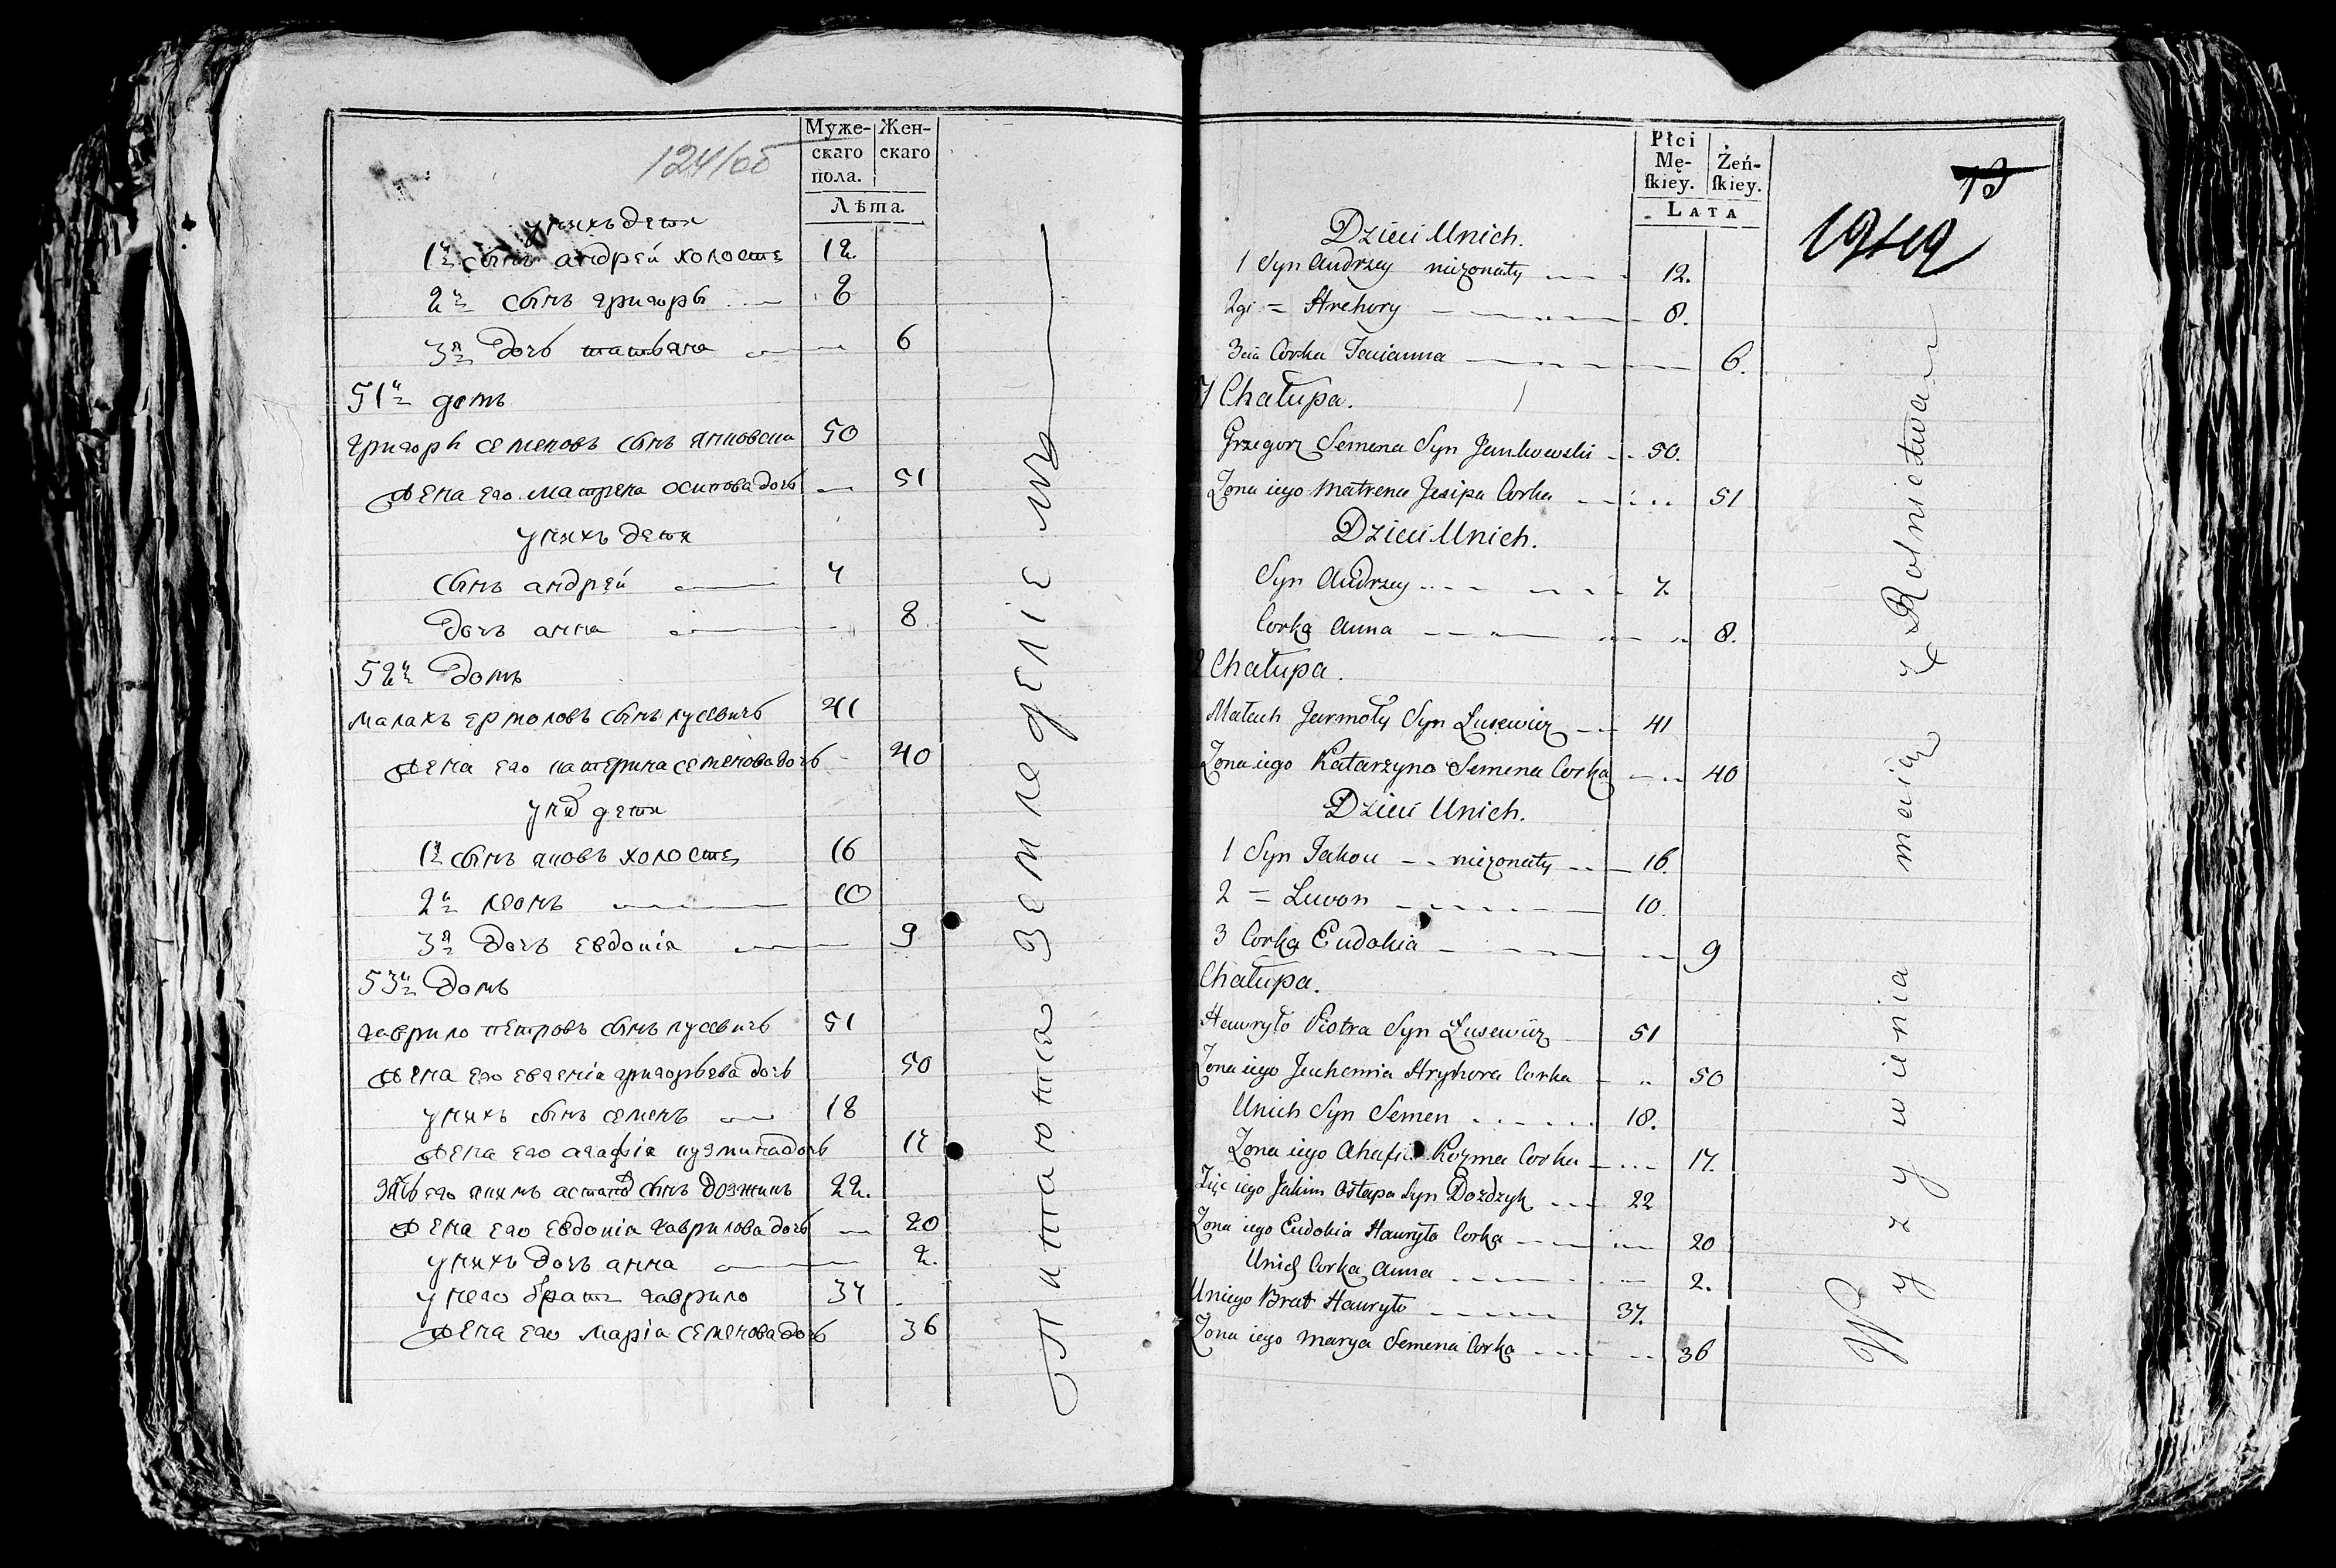 124/об
Муже-
скаго
пола.
Жен-
скаго
Лѣта.
у нихъ дети
1й сынъ андрей холостъ 12.
2й сынъ григоръ 8
3я дочь татьяна 6
51й домъ
григорй семеновъ сынъ янковски 50
жена его матрена осипова дочь 51
у нихъ дети
сынъ андрей 7
дочь анна 8
52й домъ
малахъ ермоловъ сынъ лусевичъ 41
жена его катерина семенова дочь 40
у них дети
1й сынъ яковъ холостъ 16
2й леонъ 10
3я дочь евдокiя 9
53й домъ
гаврило петровъ сынъ лусевичъ 51
жена его евгенiя григорьева дочь 50
у нихъ сынъ семенъ 18
жена его агафiя кузмина дочь 17
зять его якимъ астапов сынъ дозжикъ 22.
жена его евдокiя гаврилова дочь 20
у нихъ дочь анна 2.
у него братъ гаврило 37
жена его марiя семенова дочь 36
Питаются земледелiемъ
Płci
Mę-
ſkiey.
Żeń-
ſkiey.
Lata
Dzieci Unich.
1 Syn Andrzey niezonaty 12.
2gi = Hrehory 8.
3cia Corka Tacianna 6.
1 Chałupa.
Grzegorz Semena Syn Jankowski 50.
Zona iego Matrena Jesipa Corka 51
Dzieci Unich.
Syn Andrzey 7.
Corka Anna 8.
2 Chałupa.
Małach Jarmoły Syn Łusewicz 41
Zona iego Katarzyna Semena Corka 40
Dzieci Unich.
1 Syn Jakou niezonaty 16.
2 = Lewon 10.
3 Corka Eudokia 9
Chałupa.
Hawryło Piotra Syn Łusewicz 51
Zona iego Jeuhemia Hryhora Corka 50
Unich Syn Semen 18.
Zona iego Ahafia Kozma Corka 17.
Zięć iego Jakim Ostapa Syn Dozdzyk 22
Zona iego Eudokia Hawryła Corka 20
Unich Corka Anna 2.
Uniego Brat Hawryło 37.
Zona iego Marya Semena Corka 36
Wyzywienia maią z Rolnictwa